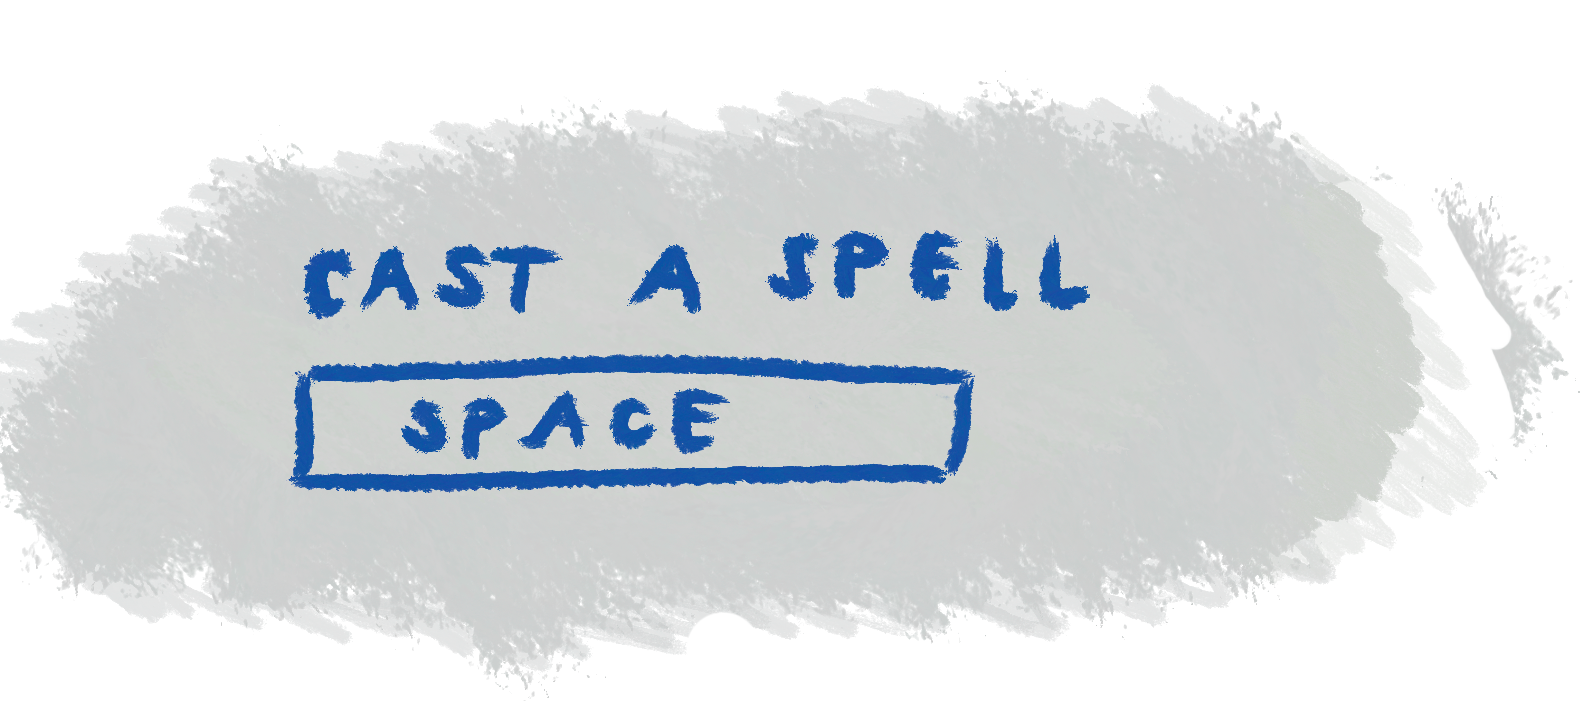 CAST A SPELL
SPACE